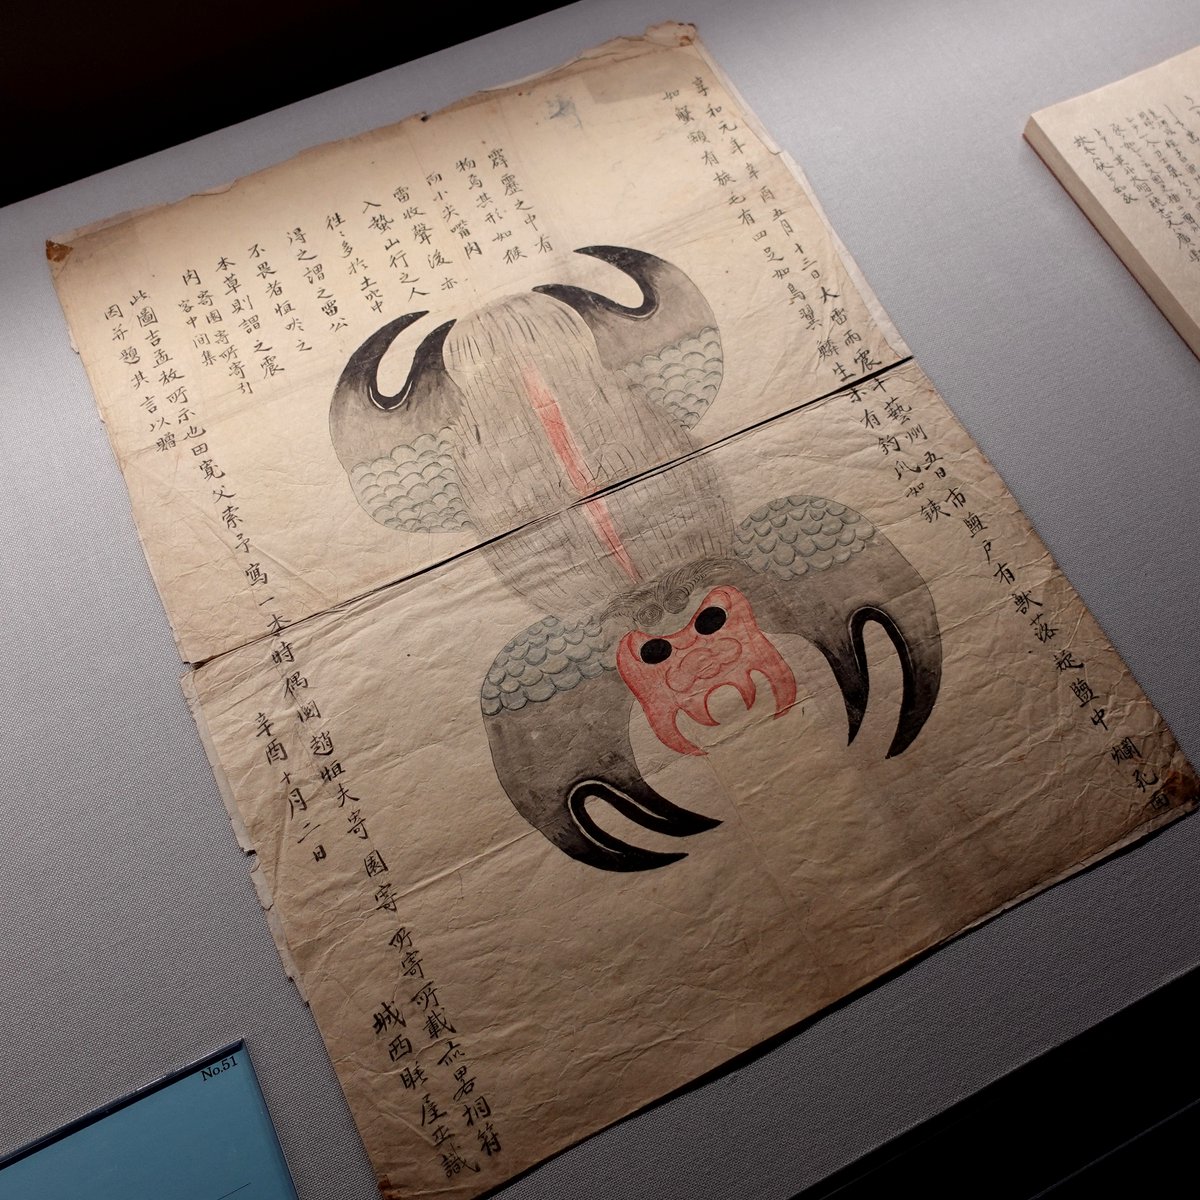 享和元年辛酉五月十三日大雷雨震于藝州五日市鹽戸有獸落埞鹽中爛死面
如蟹額有旋毛有四足如鳥翼鱗生末有釣爪如鋏
霹靂之中有
物焉其形如猴
而小尖嘴肉
雷收聲後亦
入蟄山行之人
往〻多於土穴中
得之謂之雷公
不畏者恒啖之
本草則謂之震
肉 寄園寄所寄引
客中間集
此圖吉孟敖所示也田寛父索予寫一本時偶閲趙恒夫寄園寄所寄所載亦畧相符
因并題其言以贈
辛酉十月二日
城西 屋 識
No.51